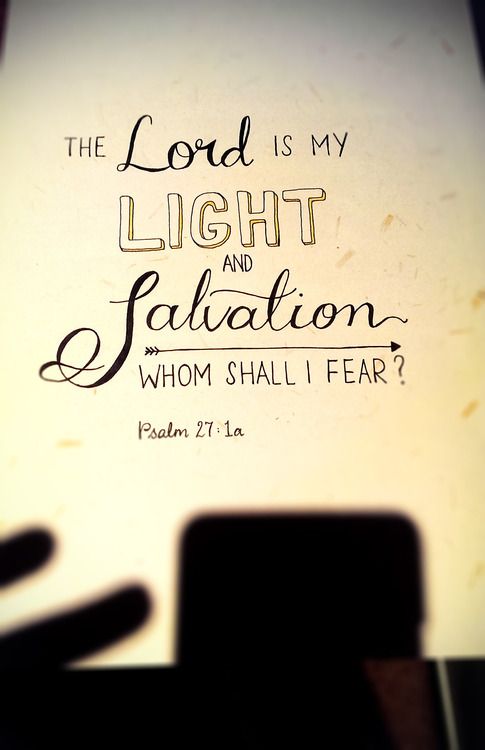 THE Lord IS MY
LIGHT
AND
Salvation
WHOM SHALL I FEAR?
Psalm 27:1a